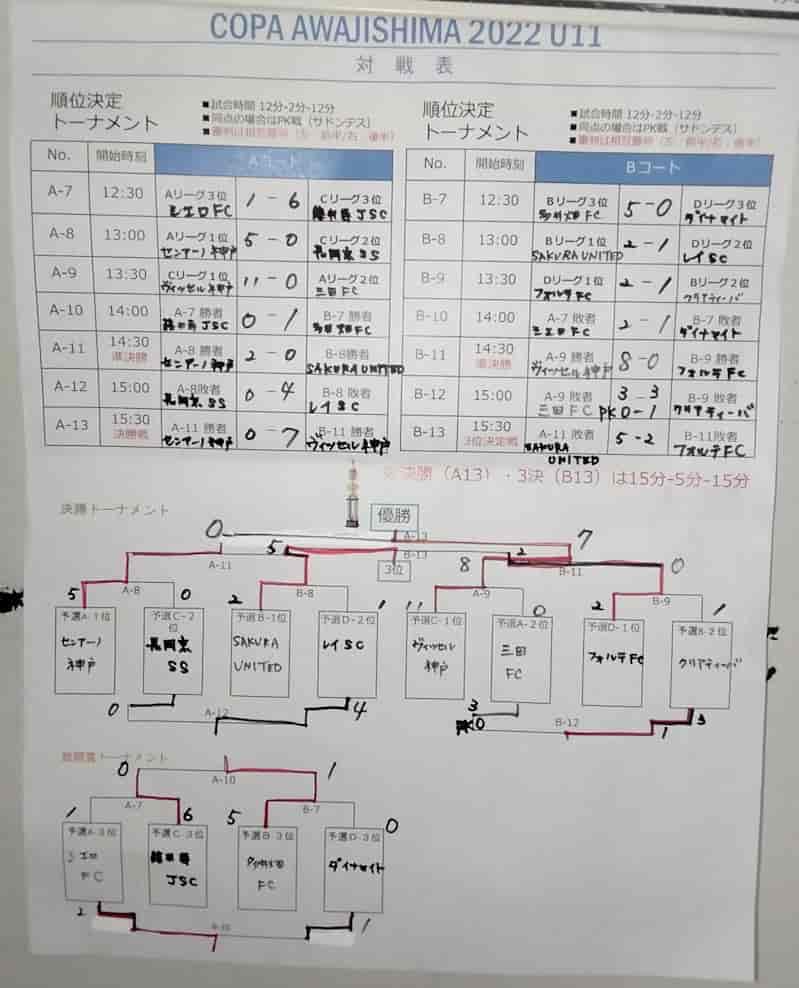 COPA AWAJISHIMA 2022 U11
対 戦 表
順位決定
トーナメント
■試合時間 12分-2分-12分
■同点の場合はPK戦（サドンデス）
No. 開始時刻 Aコート
A-7 12:30 Aリーグ3位 1 - 6 Cリーグ3位
シエロFC JSC
A-8 13:00 Aリーグ1位 5 - 0 Cリーグ2位
センアーノ神戸 長岡京SS
A-9 13:30 Cリーグ1位 11 - 0 Aリーグ2位
ヴィッセル神戸 三田FC
A-10 14:00 A-7 勝者 0 - 1 B-7 勝者
JSC FC
A-11 14:30 準決勝 A-8 勝者 2 - 0 B-8勝者
センアーノ神戸 SAKURA UNITED
A-12 15:00 A-8敗者 0 - 4 B-8 敗者
長岡京SS レイSC
A-13 15:30 決勝戦 A-11 勝者 0 - 7 B-11 勝者
センアーノ神戸 ヴィッセル神戸
順位決定
トーナメント
■試合時間 12分-2分-12分
■同点の場合はPK戦（サドンデス）
No. 開始時刻 Bコート
B-7 12:30 Bリーグ3位 5 - 0 Dリーグ3位
FC ダイナマイト
B-8 13:00 Bリーグ1位 2 - 1 Dリーグ2位
SAKURA UNITED レイSC
B-9 13:30 Dリーグ1位 2 - 1 Bリーグ2位
フォルテFC クリアティーバ
B-10 14:00 A-7 敗者 2 - 1 B-7 敗者
シエロFC ダイナマイト
B-11 14:30 準決勝 A-9 勝者 8 - 0 B-9 勝者
ヴィッセル神戸 フォルテFC
B-12 15:00 A-9 敗者 3 - 3 B-9 敗者
三田FC PK 0-1 クリアティーバ
B-13 15:30 3位決定戦 A-11 敗者 5 - 2 B-11敗者
SAKURA UNITED フォルテFC
決勝（A13）・3決（B13）は15分-5分-15分
決勝トーナメント
優勝
0 A-13 7
5 B-13 2
3位
A-11 8 B-11 0
5 A-8 0 2 B-8 1 11 A-9 0 2 B-9 1
予選A-1位 予選C-2位 予選B-1位 予選D-2位 予選C-1位 予選A-2位 予選D-1位 予選B-2位
センアーノ神戸 長岡京SS SAKURA UNITED レイSC ヴィッセル神戸 三田FC フォルテFC クリアティーバ
0 A-12 4 3 PK0 B-12 1 3
トーナメント
0 A-10 1
1 A-7 6 5 B-7 0
予選A-3位 予選C-3位 予選B-3位 予選D-3位
シエロFC JSC FC ダイナマイト
2 B-10 1